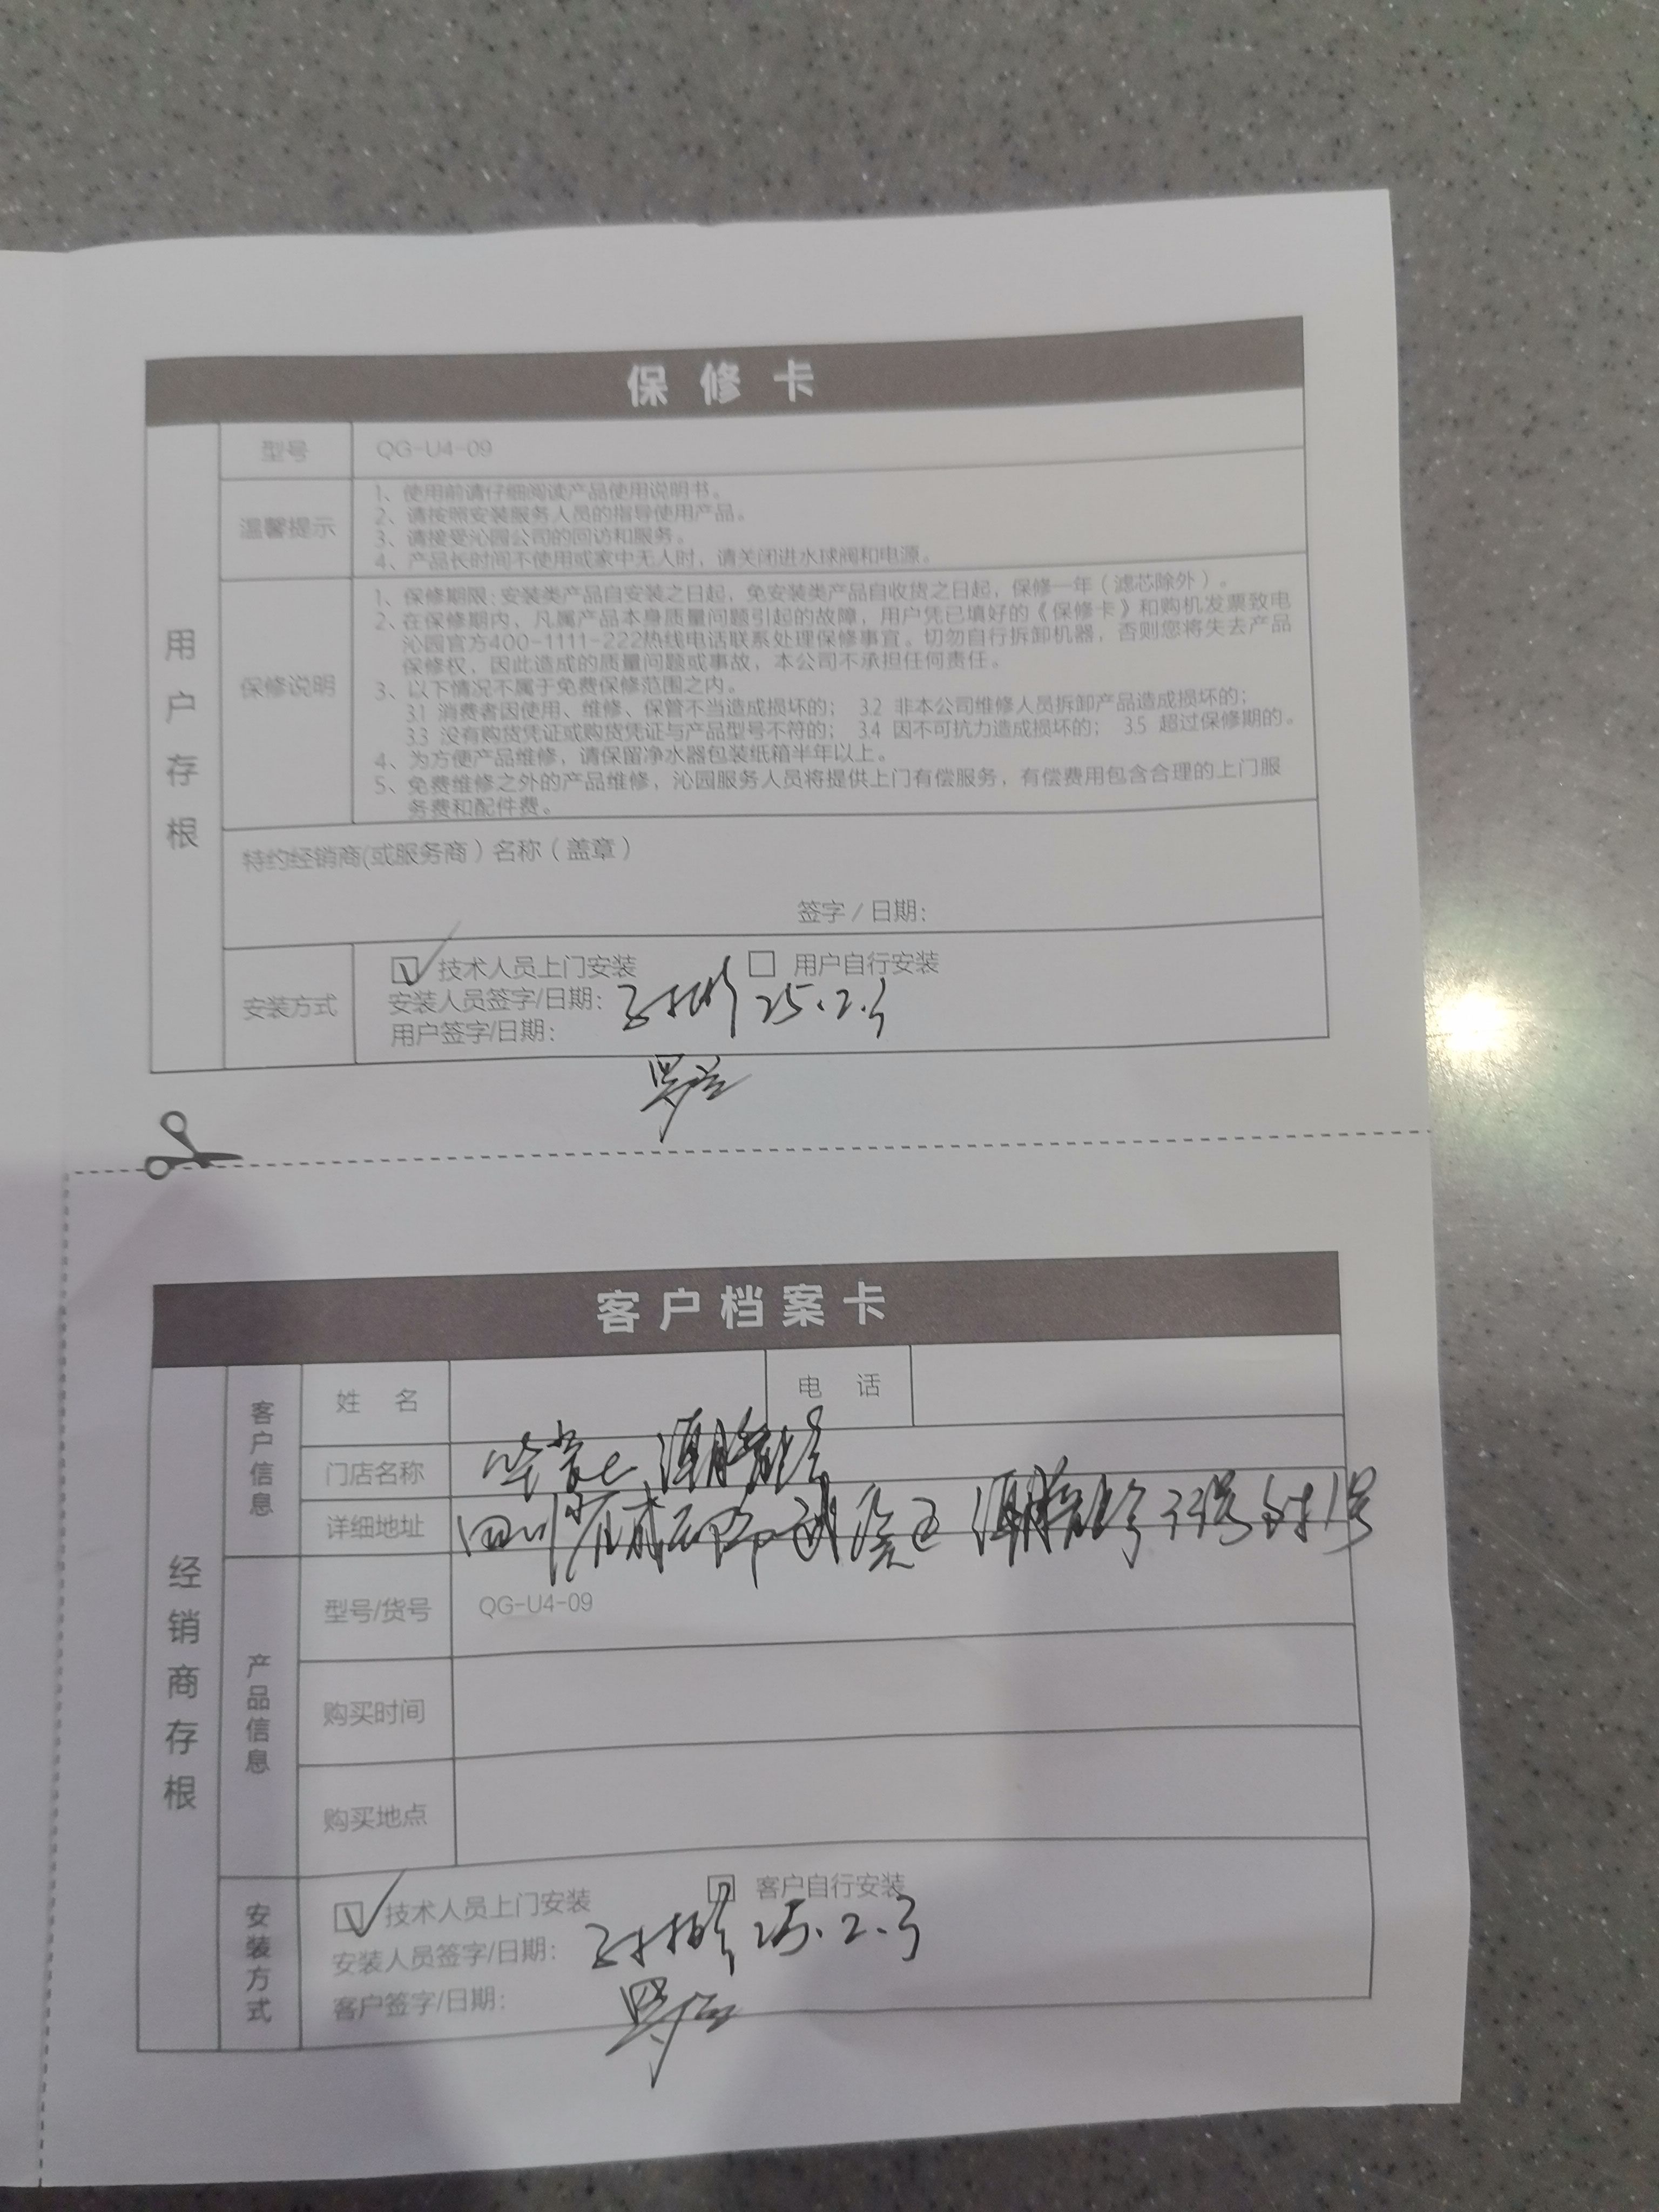 保修卡
用户存根
型号 QG-U4-09
温馨提示
1、使用前请仔细阅读产品使用说明书。
2、请按照安装服务人员的指导使用产品。
3、请接受沁园公司的回访和服务。
4、产品长时间不使用或家中无人时，请关闭进水球阀和电源。
保修说明
1、保修期限：安装类产品自安装之日起，免安装类产品自收货之日起，保修一年（滤芯除外）。
2、在保修期内，凡属产品本身质量问题引起的故障，用户凭已填好的《保修卡》和购机发票致电
沁园官方400-1111-222热线电话联系处理保修事宜。切勿自行拆卸机器，否则您将失去产品
保修权，因此造成的质量问题或事故，本公司不承担任何责任。
3、以下情况不属于免费保修范围之内。
3.1 消费者因使用、维修、保管不当造成损坏的； 3.2 非本公司维修人员拆卸产品造成损坏的；
3.3 没有购货凭证或购货凭证与产品型号不符的； 3.4 因不可抗力造成损坏的； 3.5 超过保修期的。
4、为方便产品维修，请保留净水器包装纸箱半年以上。
5、免费维修之外的产品维修，沁园服务人员将提供上门有偿服务，有偿费用包含合理的上门服
务费和配件费。
特约经销商(或服务商）名称（盖章）
签字 / 日期：
安装方式
技术人员上门安装 用户自行安装
安装人员签字/日期： 25.2.3
用户签字/日期：
客户档案卡
经销商存根
客户信息
姓 名 电 话
门店名称
详细地址 四川省成都 33号附1号
产品信息
型号/货号 QG-U4-09
购买时间
购买地点
安装方式
技术人员上门安装 客户自行安装
安装人员签字/日期： 25.2.3
客户签字/日期：